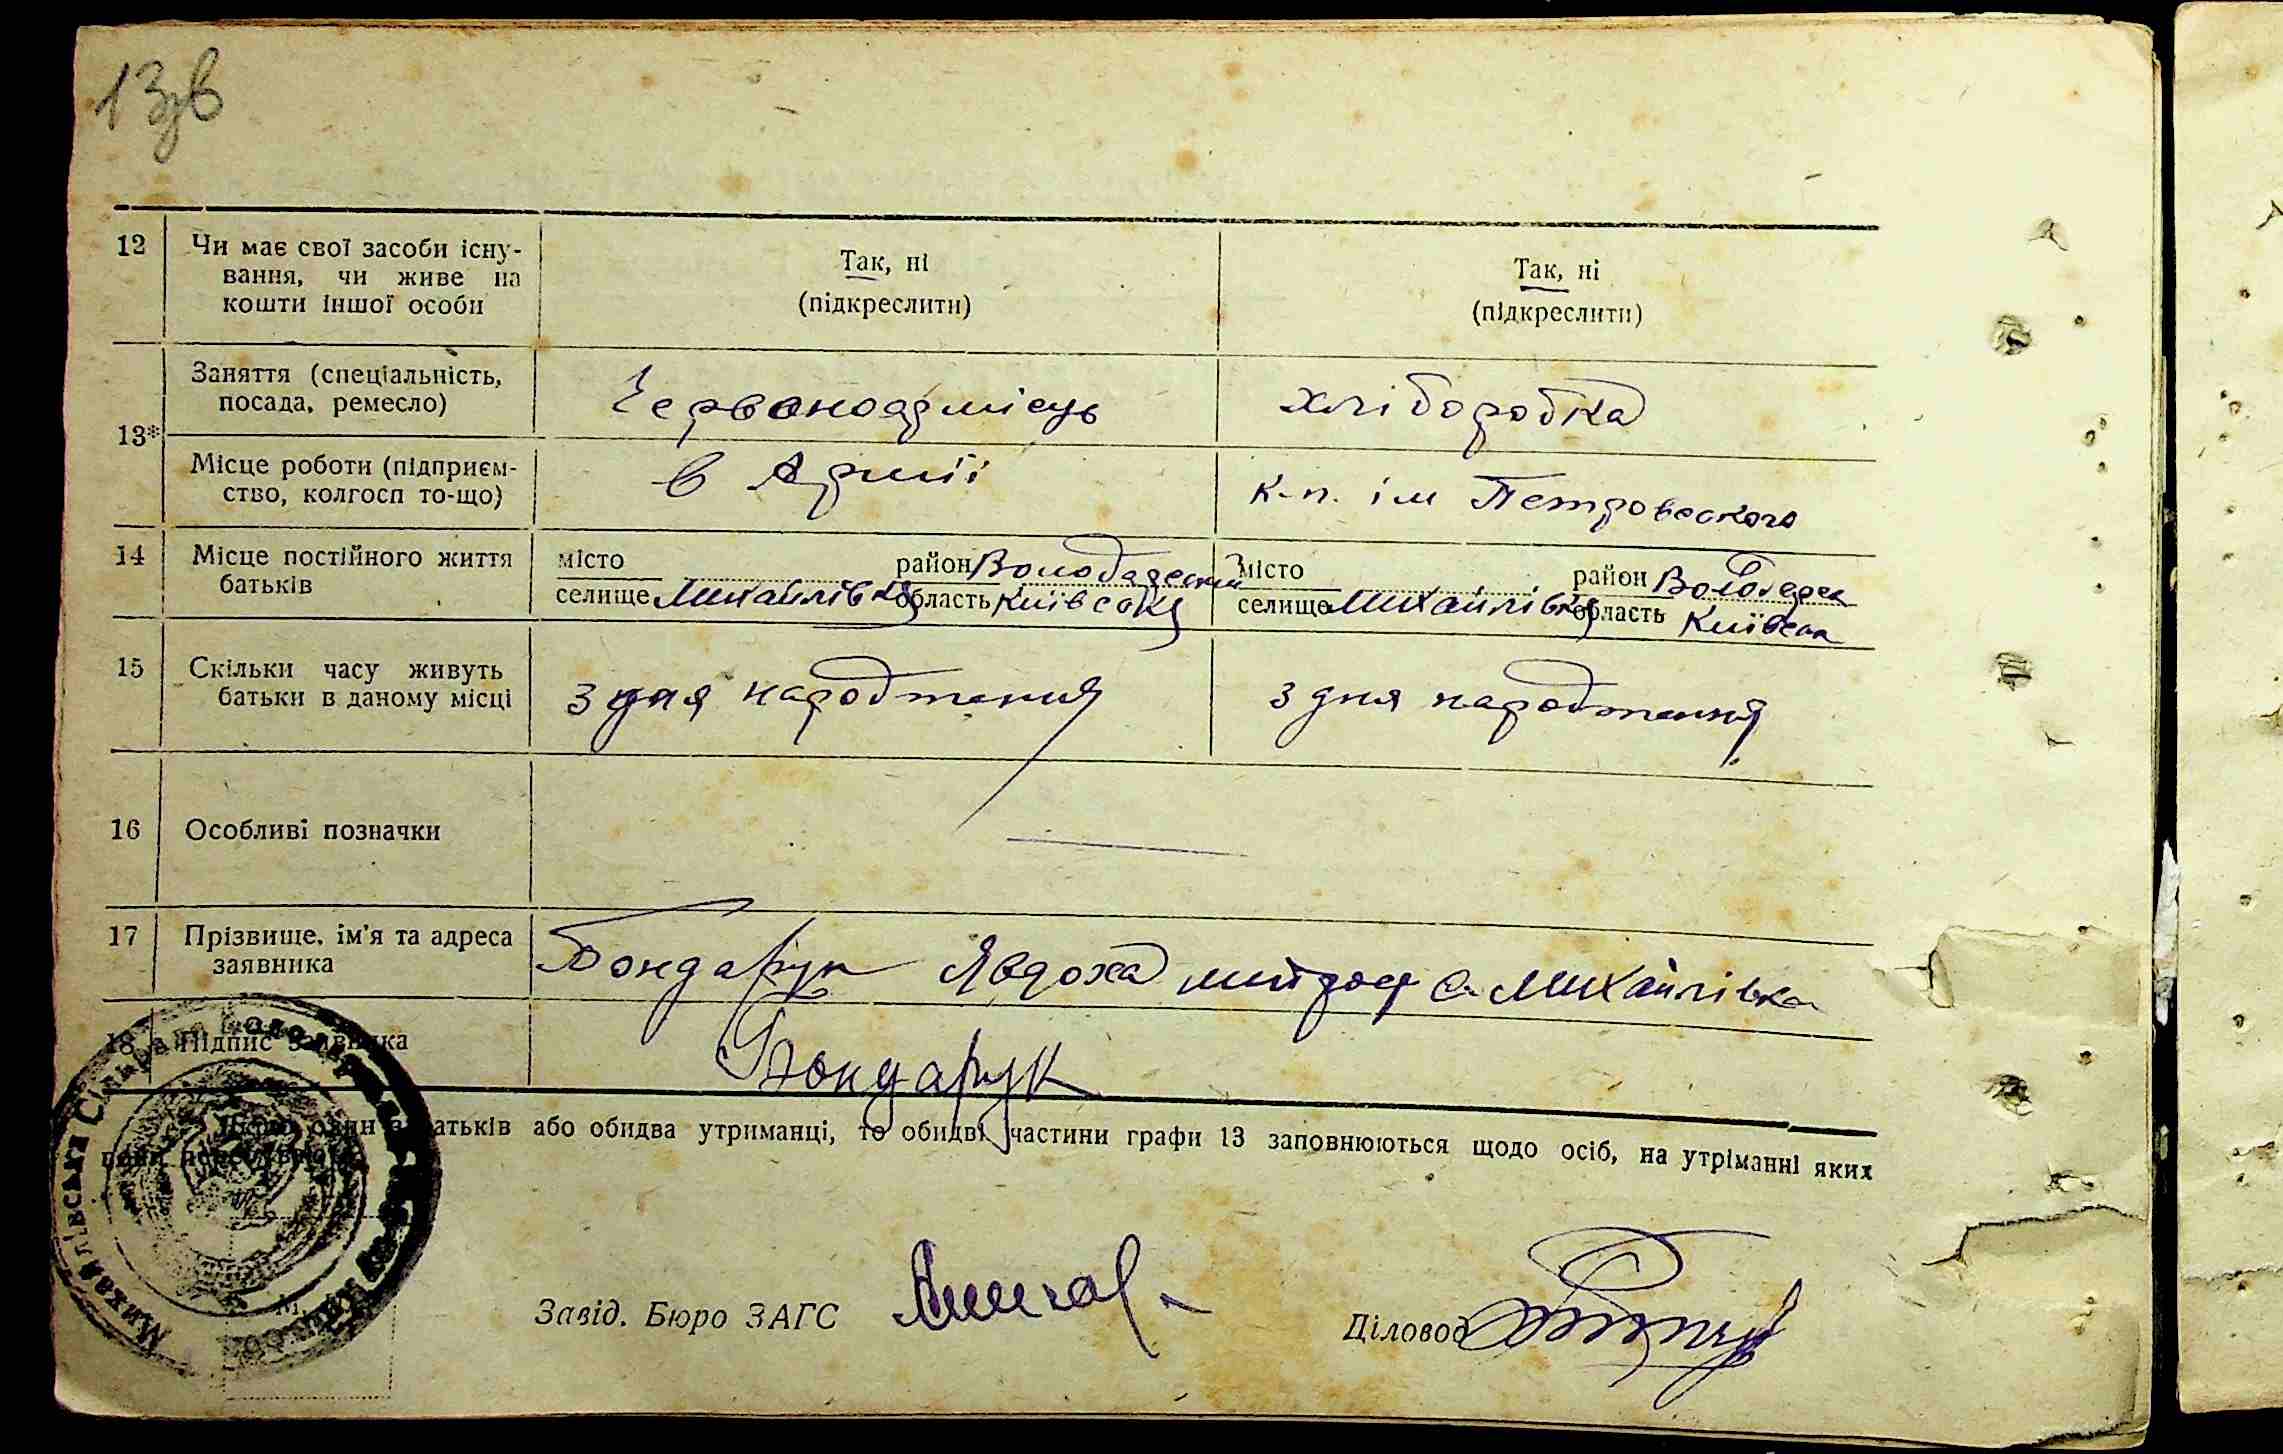 13зв
12 Чи має свої засоби існу-
вання, чи живе на
кошти іншої особи
Так, ні
(підкреслити)
Так, ні
(підкреслити)
13*
Заняття (спеціальність,
посада, ремесло)
Червоноармієць
хліборобка
Місце роботи (підприєм-
ство, колгосп то-що)
в Армії
к-п. ім Петровського
14 Місце постійного життя
батьків
місто район Володарський
селище Михайлівка область Київська
місто район Володарск
селище Михайлівка область Київськ
15 Скільки часу живуть
батьки в даному місці
з дня народження
з дня народження
16 Особливі позначки
17 Прізвище, ім'я та адреса
заявника
Бондарук Явдоха митроф с. Михайлівка
18 Підпис заявника
Бондарук
один з батьків або обидва утриманці, то обидві частини графи 13 заповнюються щодо осіб, на утріманні яких
Михайлівська Сільрада
М.
Завід. Бюро ЗАГС
Діловод